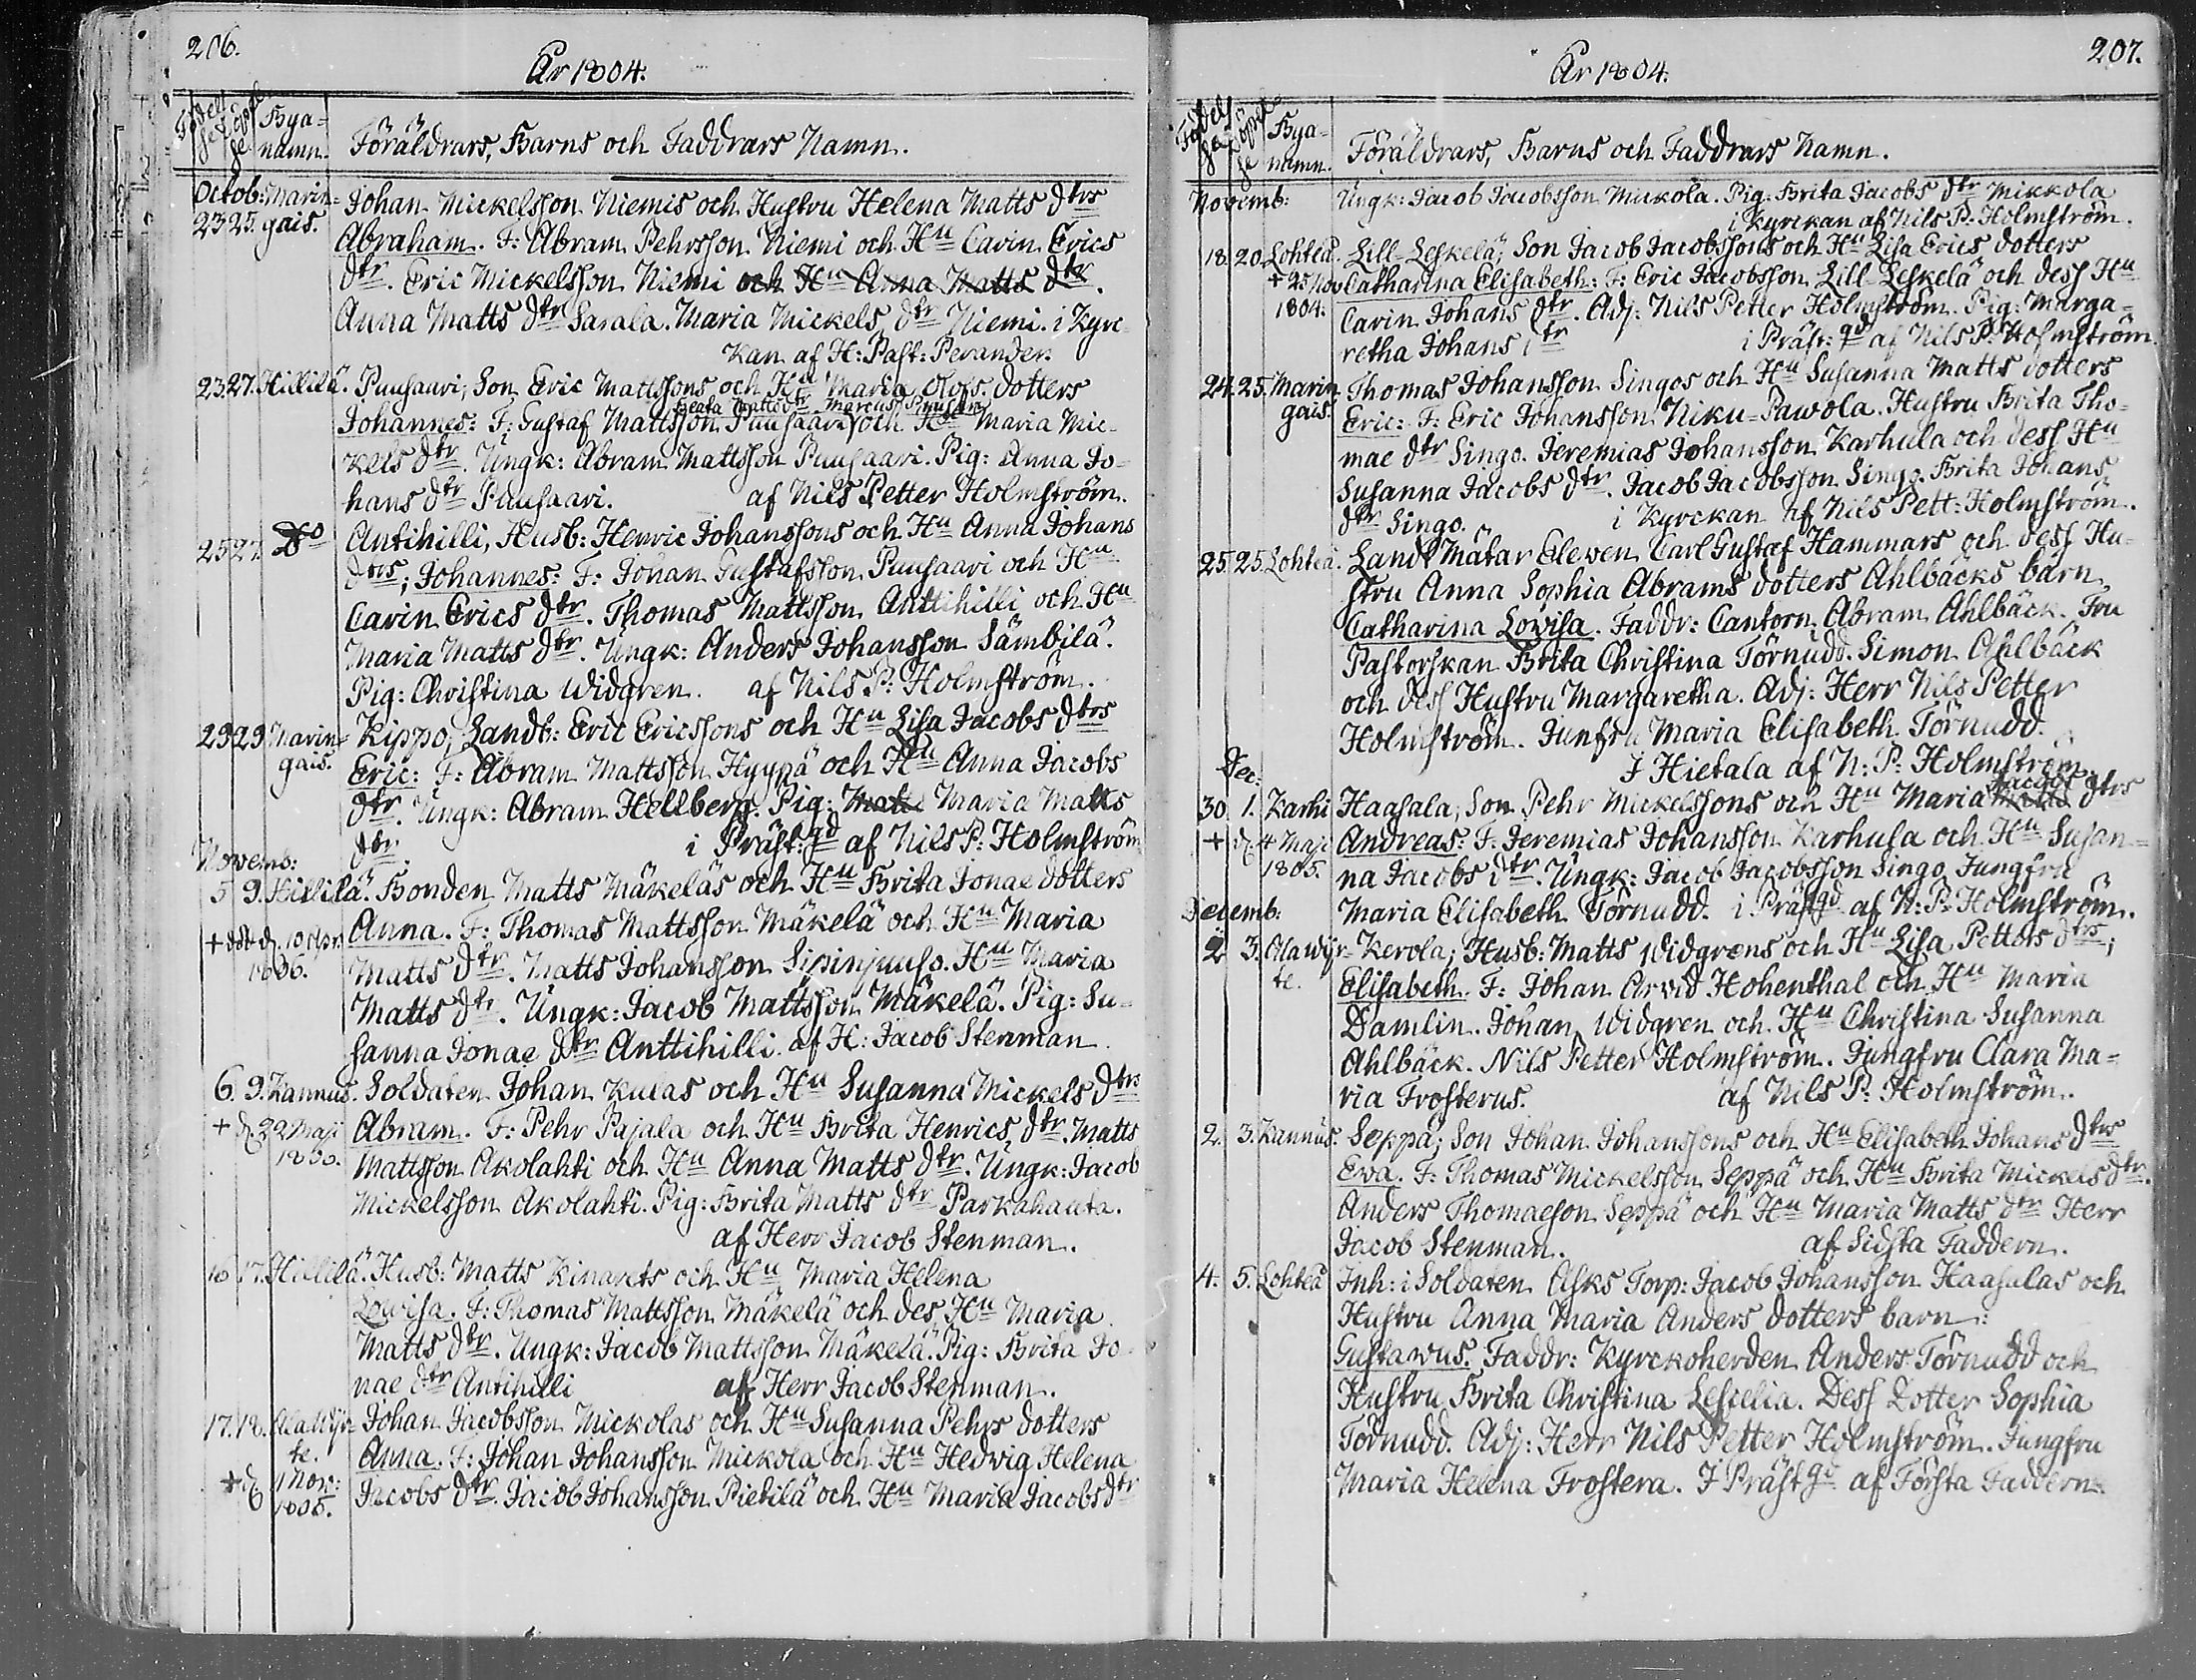 206.
År 1804.
Födelse Döpelse Bya=namn. Föräldrars, Barns och Faddrars Namn.
Octob: Marin= Johan Mickelsson Niemis och Hustru Helena Matts dtrs
23 25. gais. Abraham. F: Abram Pehrsson Niemi och Hu Carin Erics
dtr. Eric Mickelsson Niemi och Hu Anna Matts dtr.
Anna Matts dtr Sarala. Maria Mickels dtr Niemi. i Kyrc-
kan af H: Past: Perander.
23. 27. Hillilä. Puusaari; Son Eric Mattssons och Hu Maria Olofs dotters
Beata Matts dtr Marcus Puusaari
Johannes: F: Gustaf Mattsson Puusaari och Hu Maria Mic-
kels dtr. Ungk: Abram Mattsson Puusaari. Pig: Anna Jo-
hans dtr Puusaari. af Nils Petter Holmström.
25 27. Do Antihilli, Husb: Henric Johanssons och Hu Anna Johans
dtrs; Johannes: F: Johan Gustafsson Puusaari och Hu
Carin Erics dtr. Thomas Mattsson Anttihilli och Hu
Maria Matts dtr. Ungk: Anders Johansson Sämbilä.
Pig: Christina Widgren. af Nils P: Holmström.
29 29. Marin= Kippo; Landb: Eric Ericssons och Hu Lisa Jacobs dtrs
gais. Eric: F: Abram Mattsson Hyypä och Hu Anna Jacobs
dtr. Ungk: Abram Hellberg. Pig: Matts Maria Matts
dtr. i Präst:gd af Nils P: Holmström
Novemb:
5 9. Hillilä. Bonden Matts Mäkeläs och Hu Brita Jonae dotters
+ d. 10 Apr. Anna. F: Thomas Mattsson Mäkelä och Hu Maria
1806. Matts dtr. Matts Johansson Sipinjunso. Hu Maria
Matts dtr. Ungk: Jacob Mattsson Mäkelä. Pig: Su-
sanna Jonae dtr Anttihilli. af H: Jacob Stenman.
6. 9. Kannus. Soldaten Johan Kulas och Hu Susanna Mickels dtrs
+ d. 22 Maji Abram. F: Pehr Pajala och Hu Brita Henrics dtr. Matts
1830. Mattsson Akolahti och Hu Anna Matts dtr. Ungk: Jacob
Mickelsson Akolahti. Pig: Brita Matts dtr Parkahauta.
af Herr Jacob Stenman.
16 17. Hillilä. Husb: Matts Kinarets och Hu Maria Helena
Lowisa. F: Thomas Mattsson Mäkelä och des Hu Maria
Matts dtr. Ungk: Jacob Mattsson Mäkelä. Pig: Brita Jo-
nae dtr Antihilli af Herr Jacob Stenman.
17. 18. Alawijr= Johan Jacobsson Mickolas och Hu Susanna Pehrs dotters
te. Anna. F: Johan Johansson Mickola och Hu Hedwig Helena
+ d. 1 Nov: 1805. Jacobs dtr. Jacob Johansson Pietilä och Hu Maria Jacobs dtr
207.
År 1804.
Födelse Döpelse Bya-namn. Föräldrars, Barns och Faddrars Namn.
Novemb: Ungk: Jacob Jacobsson Mickola. Pig: Brita Jacobs dtr Mikkola
i Kyrckan af Nils P: Holmström.
18. 20. Lohteå. Lill-Leskelä; Son Jacob Jacobssons och Hu Lisa Erics dotters
+ 25 Nov Catharina Elisabeth: F: Eric Jacobsson Lill-Leskelä och dess Hu
1804. Carin Johans dtr. Adj: Nils Petter Holmström. Pig: Marga-
retha Johans dtr i Präst:gd af Nils P: Holmström.
24. 25. Marin- Thomas Johansson Singos och Hu Susanna Matts dotters
gais. Eric: F: Eric Johansson Niku-Pawola. Hustru Brita Tho-
mae dtr Singo. Jeremias Johansson Karhula och dess Hu
Susanna Jacobs dtr. Jacob Jacobsson Singo. Brita Johans
dtr Singo. i Kyrckan af Nils Pett: Holmström.
25. 25. Lohteå. Landt Mätar Elewen Carl Gustaf Hammars och dess Hu-
stru Anna Sophia Abrams dotters Ahlbäcks barn
Catharina Lowisa. Faddr: Cantorn Abram Ahlbäck. Fru
Pastorskan Brita Christina Törnudd. Simon Ahlbäck
och dess Hustru Margaretha. Adj: Herr Nils Petter
Holmström. Junfru Maria Elisabeth Törnudd.
Dec: I Hietala af N: P: Holmström.
Jacobs
30 1. Karhi Haasala; Son Pehr Mickelssons och Hu Maria Matts dtrs
+ d. 4 Maji Andreas: F: Jeremias Johansson Karhula och Hu Susan-
1805. na Jacobs dtr. Ungk: Jacob Jacobsson Singo. Jungfru
Decemb: Maria Elisabeth Törnudd. i Prästgd af N: P: Holmström.
2 3. Alawijr- Kerola; Husb: Matts Widgrens och Hu Lisa Petters dtrs;
te. Elisabeth. F: Johan Arvid Hohenthal och Hu Maria
Damlin. Johan Widgren och Hu Christina Susanna
Ahlbäck. Nils Petter Holmström. Jungfru Clara Ma-
ria Frosterus. af Nils P: Holmström.
2. 3. Kannus. Seppä; Son Johan Johanssons och Hu Elisabeth Johans dtrs
Ewa. F: Thomas Mickelsson Seppä och Hu Brita Mickels dtr.
Anders Thomaeson Seppä och Hu Maria Matts dtr Herr
Jacob Stenman. af Sidsta Faddern.
4. 5. Lohteå Inh: i Soldaten Asks Torp: Jacob Johansson Haasalas och
Hustru Anna Maria Anders dotters barn:
Gustavus. Faddr: Kyrckoherden Anders Törnudd och
Hustru Brita Christina Lescelia. Dess Dotter Sophia
Törnudd. Adj: Herr Nils Petter Holmström. Jungfru
Maria Helena Frostera. I Prästgd af Första Faddern.